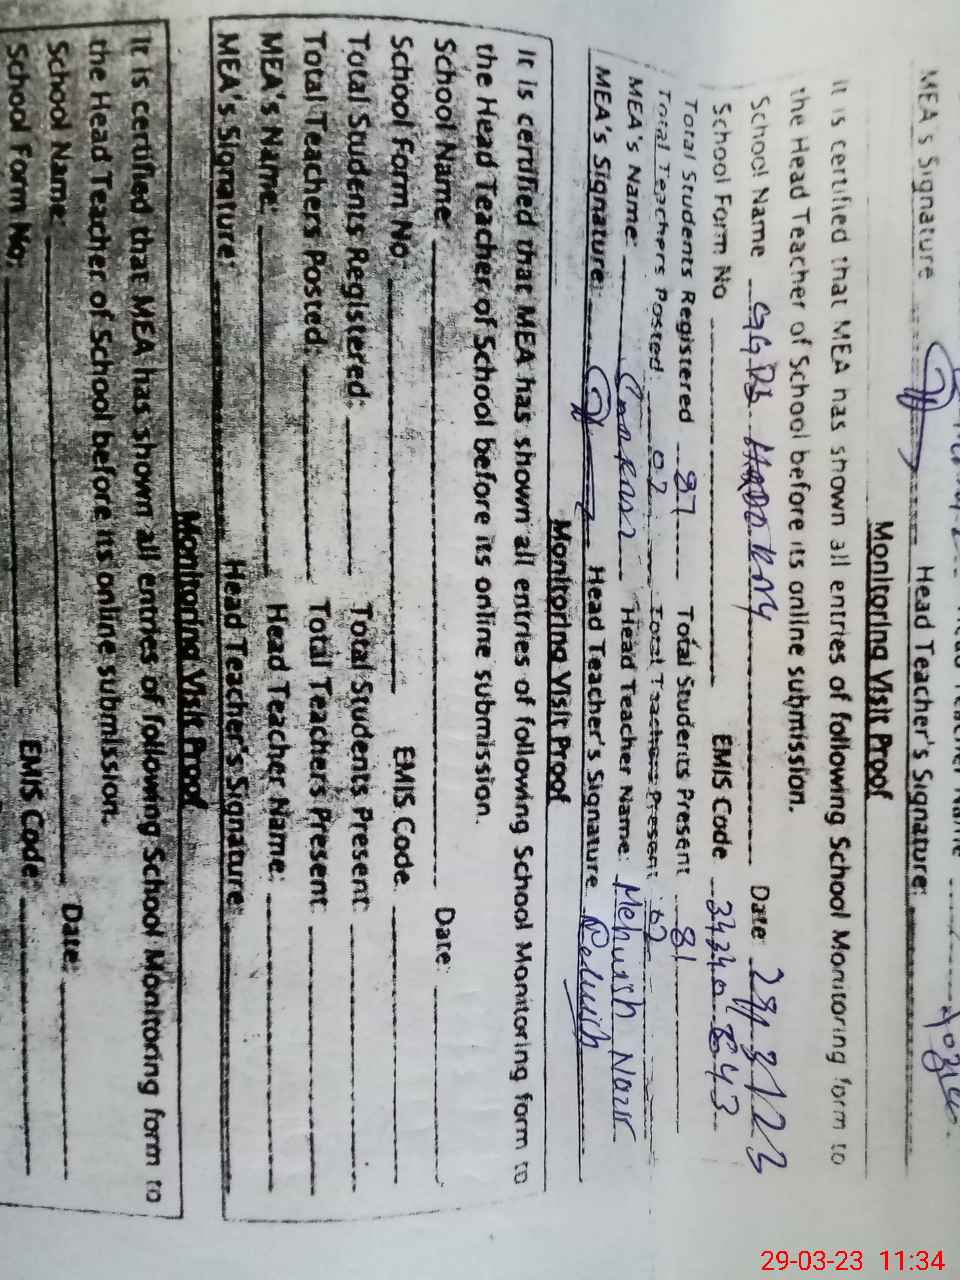 MEA's Signature Head Teacher's Signature:
Monitoring Visit Proof
It is certified that MEA has shown all entries of following School Monitoring form to
the Head Teacher of School before its online submission.
School Name GGPS Date: 29/3/23
School Form No EMIS Code 34340643
Total Students Registered 87 Total Students Present 81
Total Teachers Posted 02 Total Teachers Present 02
MEA's Name: Head Teacher Name: Mehwish Nazir
MEA's Signature: Head Teacher's Signature Mehwish
Monitoring Visit Proof
It is certified that MEA has shown all entries of following School Monitoring form to
the Head Teacher of School before its online submission.
School Name: Date:
School Form No: EMIS Code:
Total Students Registered: Total Students Present:
Total Teachers Posted: Total Teachers Present:
MEA's Name: Head Teacher Name:
MEA's Signature: Head Teacher's Signature:
Monitoring Visit Proof
It is certified that MEA has shown all entries of following School Monitoring form to
the Head Teacher of School before its online submission.
School Name: Date:
School Form No: EMIS Code:
29-03-23 11:34